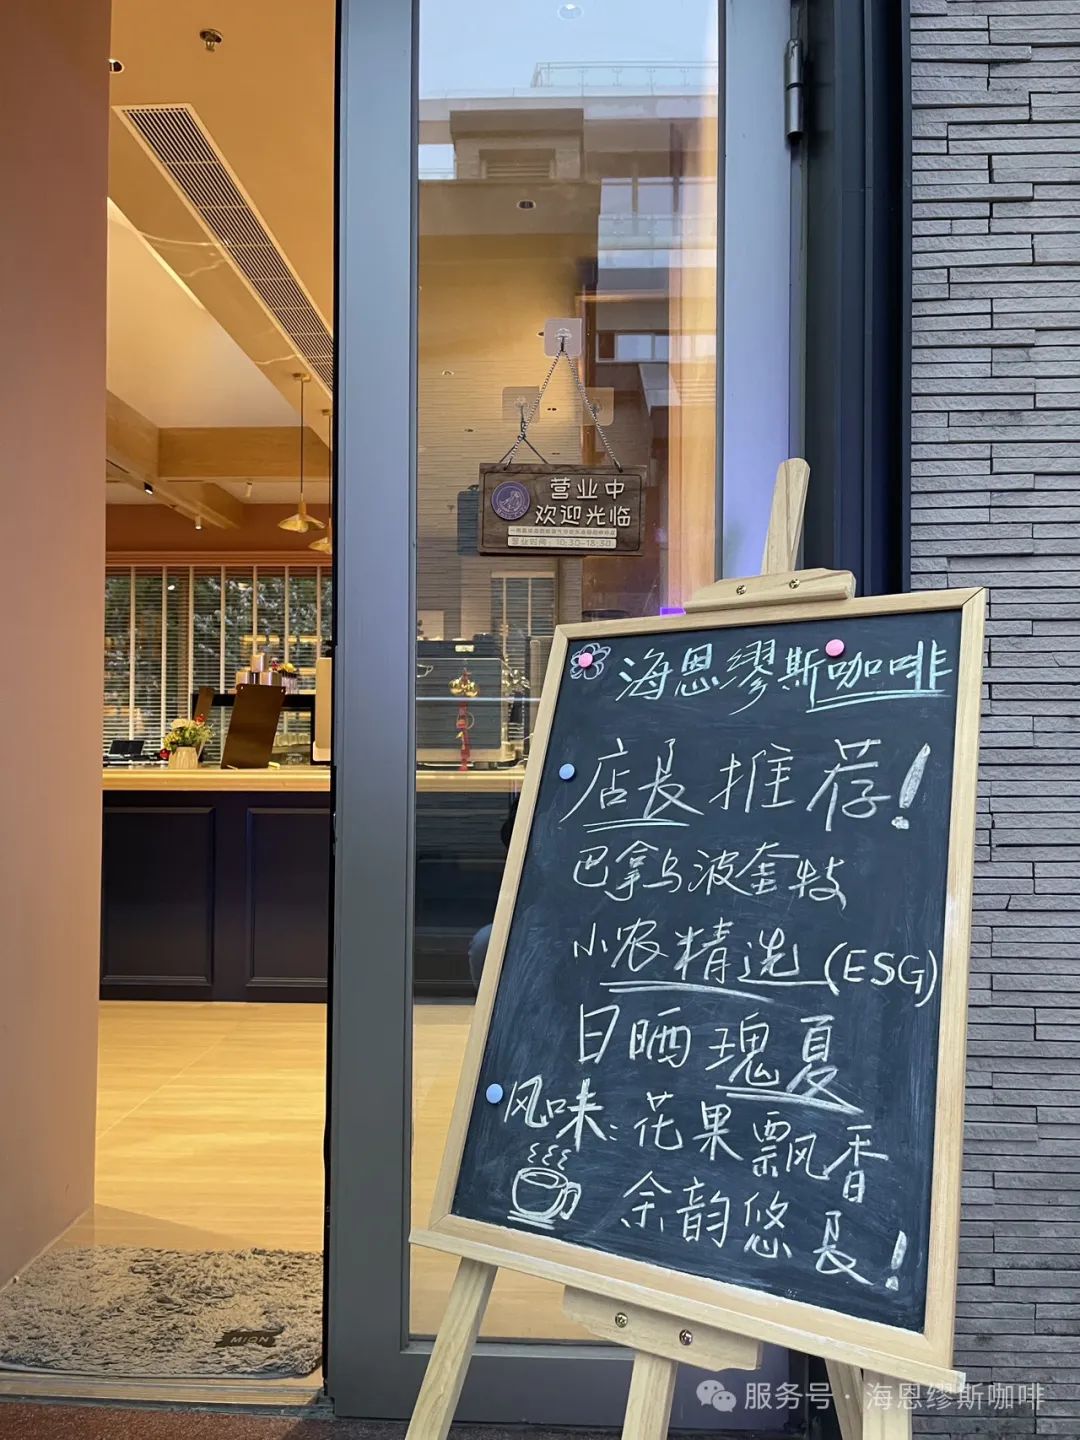 营业中
欢迎光临
营业时间：10:30-18:30
海恩缪斯咖啡
店長推荐！
巴拿马波奎特
小农精选(ESG)
日晒瑰夏
风味：花果飘香
余韵悠長！
MION
服务号·海恩缪斯咖啡